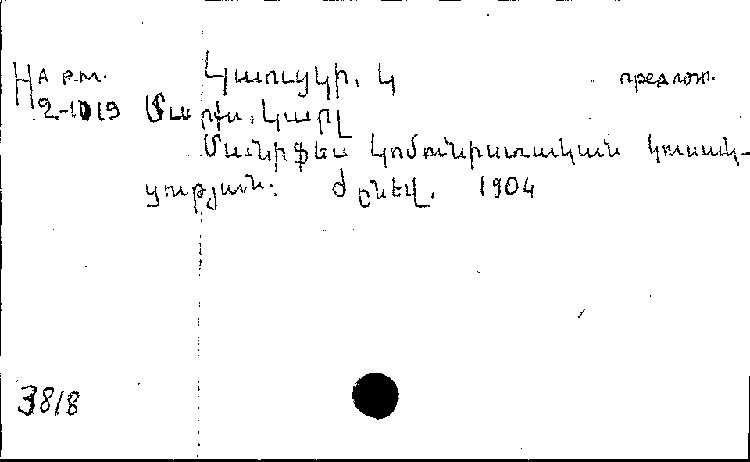 На рм. Կաուցկի. Կ предлож.
2-1019 Մարքս, Կարլ
Մանիֆես կոմունիստական կուսակ-
ցության: Ժընեվ. 1904
3818